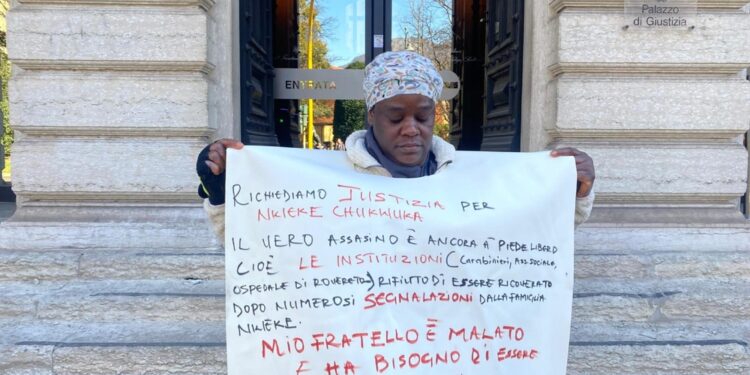 Palazzo
di Giustizia
ENTRATA
RICHIEDIAMO JUSTIZIA PER
NKIEKE CHUKWUKA
IL VERO ASSASINO È ANCORA À PIEDE LIBERO
CIOÈ LE INSTITUZIONI (Carabinieri, Ass.sociale,
OSPEDALE DI ROVERETO) RIFIUTO DI ESSERE RICOVERATO
DOPO NUMEROSI SEGNALAZIONI DALLA FAMIGLIA
NKIEKE.
MIO FRATELLO È MALATO
E HA BISOGNO DI ESSERE